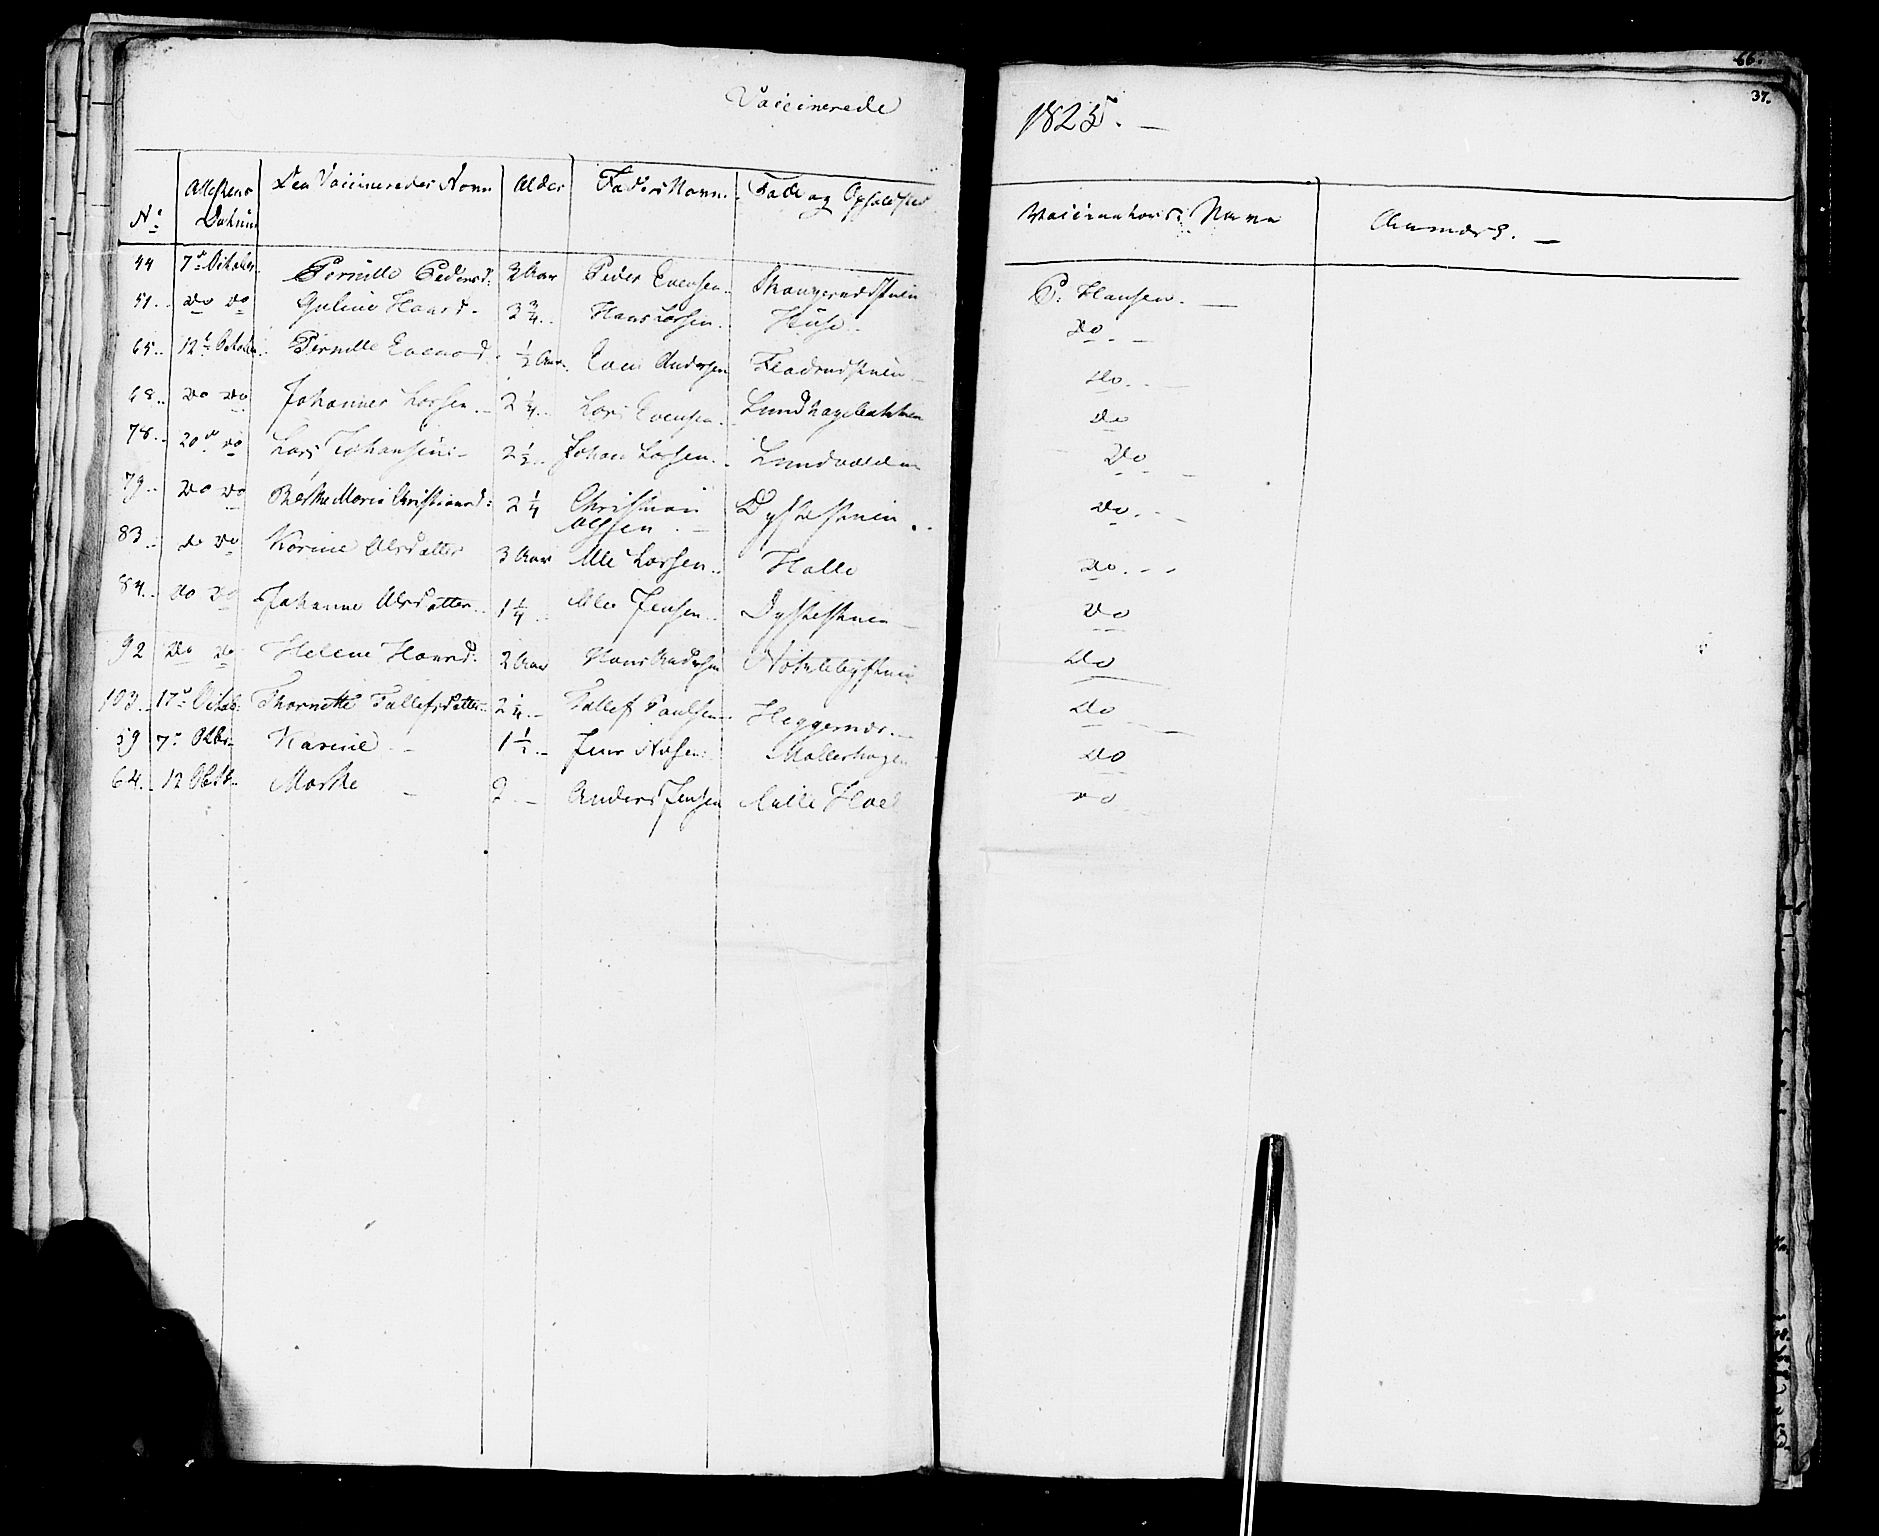 66.
37.
Vaccinerede 1825. —
No: Attestens Datum Den Vaccineredes Navn Alder Faders Navn. Føde og Opholdsted Vaccinateurs Navn Anmærk. —
44 7de October Pernille Pedersd: 2 Aar Peder Evensen. P: Hansen. —
51. do do Guline Hansd. 2 3/4. Hans Larsen. Huse. do. —
65. 12te October Pernille Evensd. 1/2 Aar. Even Andersen do. —
68. do do Johannes Larsen. 2 1/4. Lars Evensen. Lundhagebakken do
78. 20de do Lars Johansen 2 1/2. Johan Larsen. Lundvolden do. —
79. do do Berthe Maria Christiansd: 2 1/4 Christian Olsen Dystestuen. do. —
83. do do Karine Olsdatter 3 Aar Ole Larsen. Halle do. - -
84. do do Johanne Olsdatter. 1 1/4 Ole Jensen. Dystestuen — do
92 do do Helene Hansd: 2 Aar Hans Andersen do
103. 17de Octob: Thornette Tollefsdatter. 2 1/4. Tollef Paulsen. Heggernæs. do —
59 7de Octbr Karine — 1 1/2. Jens Møllerhagen do
64. 12 Octb. Marthe — 2 — Anders Jensen do